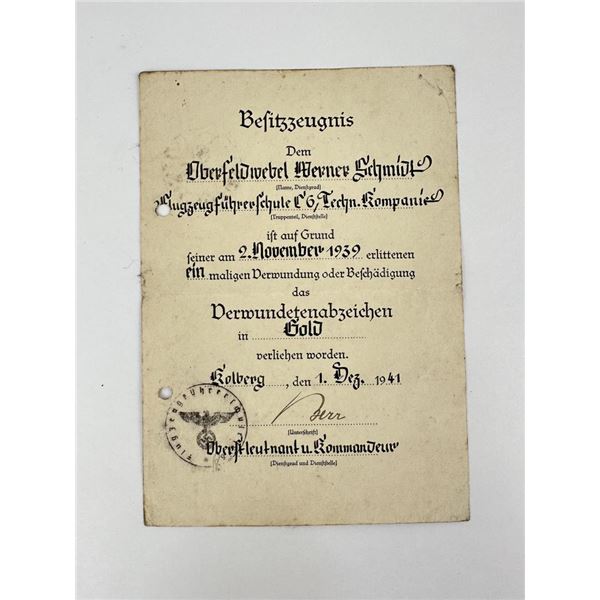 Besitzzeugnis
Dem
Oberfeldwebel Werner Schmidt
(Name, Dienstgrad)
Flugzeugführerschule C 6, Techn. Kompanie
(Truppenteil, Dienststelle)
ist auf Grund
seiner am 2. November 1939 erlittenen
ein maligen Verwundung oder Beschädigung
das
Verwundetenabzeichen
in Gold
verliehen worden.
Kolberg, den 1. Dez. 1941
(Unterschrift)
Oberstleutnant u. Kommandeur
(Dienstgrad und Dienststelle)